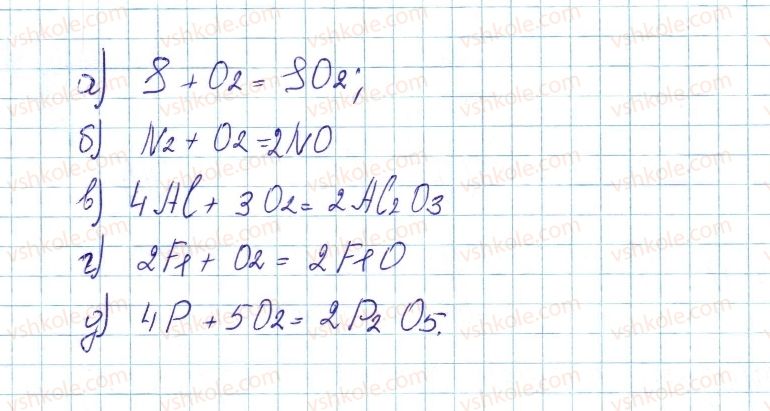 а) S + O2 = SO2;
б) N2 + O2 = 2NO
в) 4Al + 3O2 = 2Al2O3
г) 2Fe + O2 = 2FeO
д) 4P + 5O2 = 2P2O5.
vshkole.com